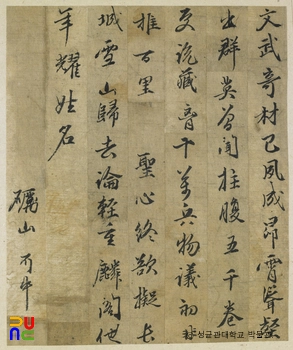 文武奇材已夙成昂霄聳壑
出群英曾聞拄腹五千卷
更說藏胷十萬兵物議初
推百里 聖心終欲擬長
城雪山歸去論輕重麟閣他
年耀姓名
礪山
성균관대학교 박물관